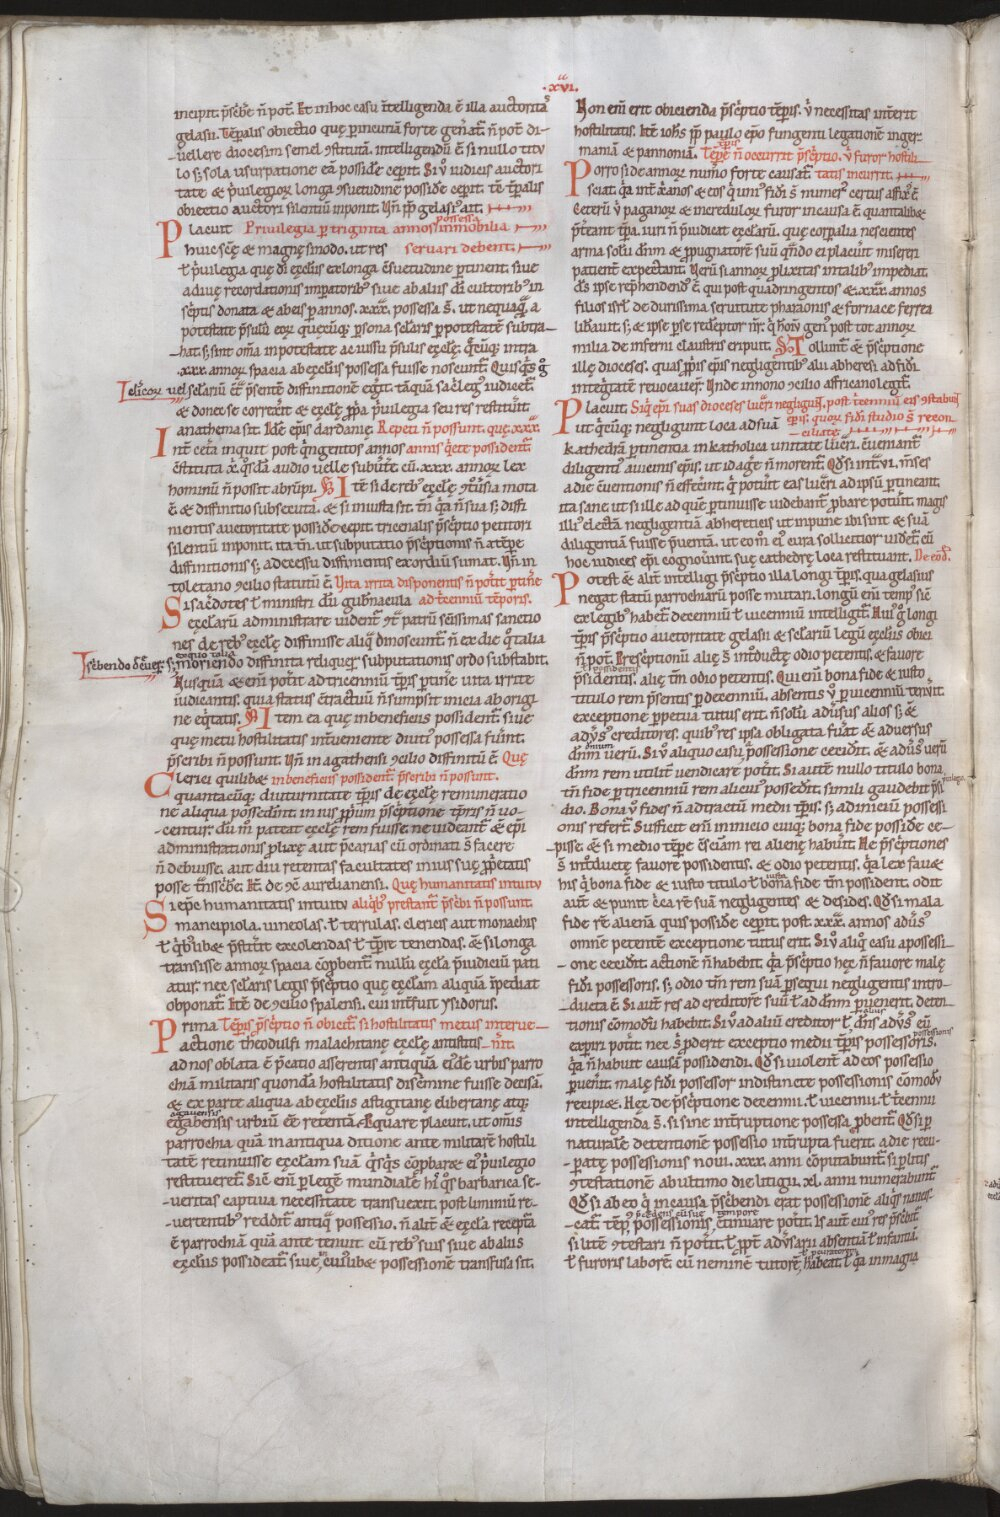 .xvi.
incipit. p̄sc̄be n̄ pot̄. Et in hoc casu īt̄elligenda ē illa auctoritas
gelasii. Tēp̄alis obiectio quę p̄ incuriā forte gen̄at̄. n̄ pot̄ di-
uellere diocesim semel ɔstitutā. intelligendū ē si nullo titu
lo s; sola usurpatione eā possidē cep̄it. Si ū iudicis auctori
tate & p̄uilegior̄ longa ɔsuetudine possidē cep̄it. tē tēp̄alis
obiectio auctori silentiū inponit. Vn̄ pp̄ gelasi' ait.
Placuit Priuilegia p̄ triginta annos inmobilia possessa
huic sc̄ę & magnę sinodo. ut res seruari debent.
l̄ p̄uilegia quę di ęcl̄iis ex longa c̄suetudine p̄tinent. siue
a diuę recordationis imp̄atorib; siue ab aliis di cultorib; in
sc̄ptis donata & ab eis p̄ annos .xxx. possessa s̄. ut nequaq̄ a
potestate p̄sulū eor̄ quęcūq; p̄sona sc̄laris p̄ potestatē subtra-
hat. s; sint om̄a in potestate ac iussu p̄sulis ęcl̄ę. q̄cūq; intra
.xxx. annor̄ spacia ab ęcl̄iis possessa fuisse noscunt̄. Quisq̄s g̊
l̄ clicor̄ uel sc̄lariū ɔt̄ p̄sentē diffinitionē eḡit. tāquā sac̄leg' iudicet̄.
& donec se correxit & ęcl̄ę p̄pa p̄uilegia seu res restituit.
anathema sit. Idē ep̄is dardanię. Repeti n̄ possunt. quę .xxx.
Int̄ cet̄a inquit post q̄ngentos annos annis q̄ete possident̄.
c̄stituta x̄. q̄sdā audio uelle subūt̄e. cū .xxx. annor̄ lex
hominū n̄ possit abrūpi. Itē si de reb; ęcl̄ę ɔt̄usia mota
ē & diffinitio subsecuta. & si iniusta sit. tn̄ q̄a n̄ sua s; diffi
nientis auctoritate possidē cep̄it. tricenalis p̄sc̄ptio petitori
silentiū inponit. ita tn̄. ut subputatio p̄sc̄ptionis n̄ a tēpe
diffinitionis s; a decessu diffinientis exordiū sumat. Vn̄ in
toletano ɔcilio statutū ē. Vita irrita disponentis n̄ pot̄it p̄tin̄e
Si sac̄dotes l̄ ministri dū gub̄nacula ad t̄cenniū tēporis.
ęcl̄arū administrare uident̄ ɔt̄ patrū sc̄issimas sanctio
nes de reb; ęcl̄ę diffinisse aliq̄ dinoscunt̄. n̄ ex die q̊ talia
sc̄bendo d̄c̄uer̄. s; ex quo talia moriendo diffinita reliquer̄. subputationis ordo substabit.
Nusquā & eni pot̄it ad tricenniū tp̄is p̄tin̄e uita irrite
iudicantis. quia status c̄tractuū n̄ sumpsit inicia ab origi
ne eq̄tatis. Item ea quę in beneficiis possident̄. siue
quę metu hostilitatis int̄ueniente diuti' possessa fuint.
p̄scribi n̄ possunt. Vn̄ in agathensi ɔcilio diffinitū ē. Quę
Clerici quilib& in beneficiis possident̄. p̄scribi n̄ possunt.
quantacūq; diuturnitate tp̄is de ęcl̄ę remuneratio
ne aliqua possed̄int. in ius p̄p̄ium p̄sc̄ptione tp̄ris n̄ uo-
centur. dū m̊ pateat ęcl̄ę rem fuisse. ne uideant̄ & ep̄i
administrationis plixę aut p̄carias cū ordinati s̄ facere
n̄ debuisse. aut diu retentas facultates in ius suę pp̄etatis
posse t̄nsc̄be. It̄ de ɔc̄ aurelianensi. Quę humanitatis intuitu
Si ep̄c humanitatis intuitu aliq̄b; prestant̄. p̄sc̄bi n̄ possunt.
mancipiola. uineolas. l̄ terrulas. clericis aut monachis
l̄ q̄b;lib& p̄stit̄it excolendas l̄ tp̄re tenendas. & si longa
transisse annor̄ spacia cōpbent̄. nullū ęcl̄a p̄iudiciū pati
atur. nec sc̄laris legis p̄sc̄ptio quę ęcl̄am aliquā p̄pediat
obponat̄. Itē de ɔcilio spalensi. cui int̄fuit ysidorus.
Prima Tēp̄is p̄sc̄ptio n̄ obicit̄. si hostilitatis metus interue-
actione theodulfi malachitanę ęcl̄ę antistitis -n̄it.
ad nos oblata ē p̄catio asserentis antiquā ei'dē urbis parro
chiā militaris quondā hostilitatis disc̄mine fuisse decisā.
& ex parte aliqua ab ęcl̄iis astigitanę elibertanę atq;
egabensis agauensis urbiū eē retentā. Equare placuit. ut om̄is
parrochia quā in antiqua ditione ante militarē hostili
tatē retinuisse ęcl̄am suā q̄sq̄s cōpbar& ei' p̄uilegio
restitueret̄. Sic eni p̄ legē mundialē his q̊s barbarica se-
ueritas captiua necessitate transuexit. post liminiū re-
uertentib; reddit̄ antiq̄ possessio. n̄ alit̄ & ęcl̄a recep̄ta
ē parrochiā quā ante tenuit cū reb; suis siue ab aliis
ęcl̄iis possideat̄. siue in cui'lib& possessionē transfusa sit.
Non eni erit obicienda p̄sc̄ptio tēp̄is. ū necessitas int̄erit
hostilitatis. Itē ioh̄s pp̄ paulo ep̄o fungenti legationē in ger
maniā & pannoniā. Tēp̄e n̄ occurrit p̄sc̄ptio. ū furor hostili
Porro si de annor̄ num̄o forte causat̄. tatis incurrit.
sciat q̄a int̄ xānos & eos q̄ uni' fidi s̄ numer' certus affix' ē.
Ceterū ū paganor̄ & incredulor̄ furor in causa ē quantalib&
p̄t̄eant tp̄a. iuri n̄ p̄iudicat ęcl̄arū. quę corp̄alia nescientes
arma solū dn̄m & p̄pugnatorē suū qn̄do ei placuit miseri
patient̄ expectant. Verū si annor̄ plixitas in talib; impediat.
ds̄ ipse rep̄hendend' ē qui post quadringentos & .xxx. annos
filios isrl̄ de durissima seruitute pharaonis & fornace ferrea
lib̄auit. s; & ipse p̄ se redēptor nr̄. q̄ hom̄ gen' post tot annor̄
milia de inferni claustris eripuit. Tollunt̄ & p̄sc̄ptione
illę dioceses. quas p̄p̄is ep̄is negligentib; alii ab heresi ad fidi
integ̊tatē reuocauer̄. Vnde in nono ɔcilio affricano legit̄.
Placuit. Siq̄ ep̄i suas dioceses luc̄ri negligunt̄. post t̄cenniū eis ɔstabunt
ut q̄cūq; negligunt loca ad suā ep̄is. quor̄ fidi studio s̄ recon
ciliate.
kathedrā p̄tinencia in katholica unitate luc̄ri. c̄ueniant̄
diligent' a uicinis ep̄is. ut id aḡe n̄ morent̄. Qd̄ si int̄ .vi. mses
a die c̄uentionis n̄ effec̄int. q̄ pot̄uit eas luc̄ri ad ipsū p̄tineant.
ita sane ut si ille ad quē p̄tinuisse uidebant̄ p̄bare pot̄uit. magis
illi' electā negligentiā ab hereticis ut inpune ibi sint & suā
diligentiā fuisse p̄uentā. ut eom̄ ei' cura sollicitior uidet̄. cū
hoc iudices ep̄i cognou̇int. suę cathedrę loca restituant. De eod̄.
Potest & alit̄ intelligi p̄sc̄ptio illa longi tp̄is. qua gelasius
negat statū parrochiarū posse mutari. longū eni temp' siē
ex legib; habet̄. decenniū l̄ uicenniū intelligit̄. Hui' g̊ longi
tp̄is p̄sc̄ptio auctoritate gelasii & sc̄lariū legū ęcl̄iis obici
n̄ pot̄. Presc̄ptionū alię s̄ int̊ductę odio petentis. & fauore
p̄sidentis possidentis. alię tm̄ odio petentis. Qui eni bona fide & iusto
titulo rem p̄sentis p̄ decenniū. absentis ū p̄ uicenniū ten̄uit.
exceptione p̄petua tutus erit. n̄ solū adūsus alios s; &
adūs' creditores. quib; res ipsa obligata fuat & aduersus
dn̄m uerū. Si ū aliquo casu a possessione cecidit. & adūs' uerū omnium
dn̄m rem utilit̄ uendicare pot̄it. Si autē nullo titulo bona
tn̄ fide p̄ tricenniū rem alicui' possedit. simili gaudebit p̄si uilegio
dio. Bona ū fides n̄ ad tractū medii tp̄is. s; ad iniciū possessi
onis refert̄. Sufficit eni inicio cuiq; bona fide possidē ce-
pisse. & si medio tēpe ɔsciam rei alienę habuit. He p̄sc̄ptiones
s̄ int̊ductę fauore possidentis. & odio petentis. q̄a lex faue
his q̄ bona fide & iusto titulo l̄ bona iusta fide tm̄ possident. odit
aut̄ & punit c̄ca rē suā negligentes & desides. Qd̄ si mala
fide rē alienā quis possidē cep̄it. post .xxx. annos adūs'
omnē petentē exceptione tutus erit. Si ū aliq̊ casu a possessi-
one cecidit. actionē n̄ habebit. q̄a p̄sc̄ptio hęc n̄ fauore malę
fidi possessoris. s; odio tm̄ rem suā p̄sequi negligentis intro-
ducta ē. Si aut̄ res ad creditorē suū l̄ ad dn̄m puenerit. deten-
tionis cōmodū habebit. Si ū ad aliū creditor l̄ dn̄s prius adūs' eū
expiri pot̄it. nec s̄ p̄derit exceptio medii tp̄is possessoris. possessionis
q̄a n̄ habuit causā possidendi. Qd̄ si uiolent̄ ad eos possessio
puen̄it. malę fidi possessor indistincte possessionis cōmodū
recipi&. Hęc de p̄sc̄ptione decennii. l̄ uicennii. l̄ t̄cennii
intelligenda s̄. si sine int̄ruptione possessa p̄bent̄. Qd̄ si p̄
naturalē detentionē possessio int̄rupta fuerit. a die recu-
p̄atę possessionis noui .xxx. anni cōputabunt̄. si p̄ litis
ɔtestationē ab ultimo die litigii .xl. anni numerabunt̄.
Qd̄ si ab eo q̄ in causa p̄sc̄bendi erat possessionē aliq̄s nanes-
cat̄. tēp' possessionis p̄cedens cui'uę tempore c̄tinuare pot̄it. Is aut̄ cui' res p̄sc̄bit̄
si litē ɔtestari n̄ pot̄it. l̄ pp̄t adūsarii absentiā l̄ infantiā.
l̄ furoris laborē. cū neminē tutorē l̄ p̄curatorē habeat. l̄ q̄a in magna